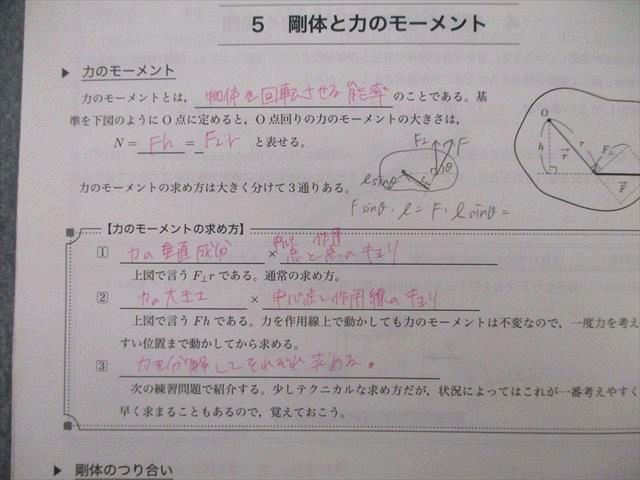 5 剛体と力のモーメント
▶ 力のモーメント
力のモーメントとは，物体を回転させる能率のことである。基
準を下図のようにO点に定めると，O点回りの力のモーメントの大きさは，
N = Fh = F⊥r と表せる。
F⊥ F
θ
lsinθ
F sinθ・l = F・l sinθ =
O
h r r F⊥
F
力のモーメントの求め方は大きく分けて3通りある。
【力のモーメントの求め方】
① 力の垂直成分 × 中心点と作用点のキョリ
上図で言うF⊥rである。通常の求め方。
② 力の大きさ × 中心点と作用線のキョリ
上図で言うFhである。力を作用線上で動かしても力のモーメントは不変なので，一度力を考え
すい位置まで動かしてから求める。
③ 力を分解してそれぞれ求める。
次の練習問題で紹介する。少しテクニカルな求め方だが，状況によってはこれが一番考えやすく
早く求まることもあるので，覚えておこう。
▶ 剛体のつり合い